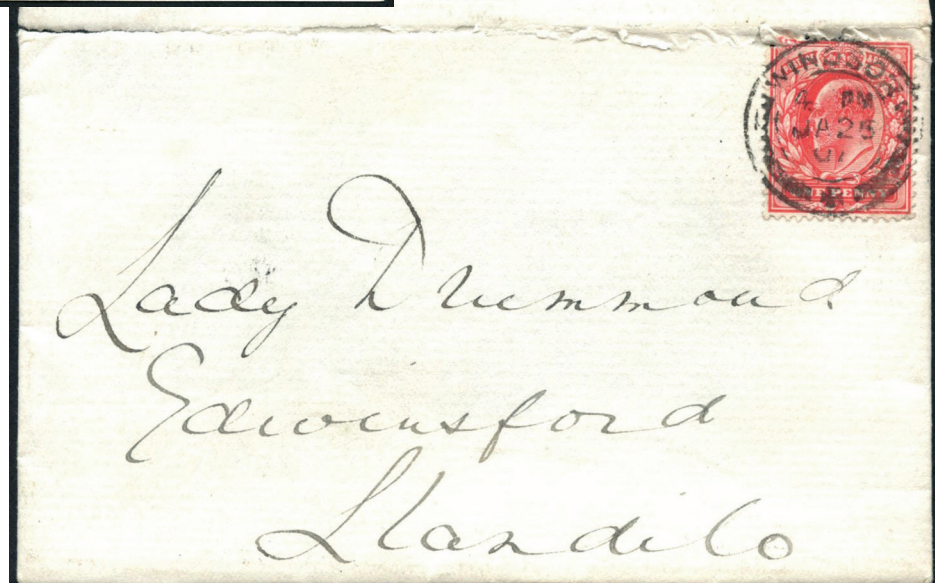 WINDSOR
4 PM
JA 25
07
ONE PENNY
Lady Drummond
Edwinsford
Llandilo